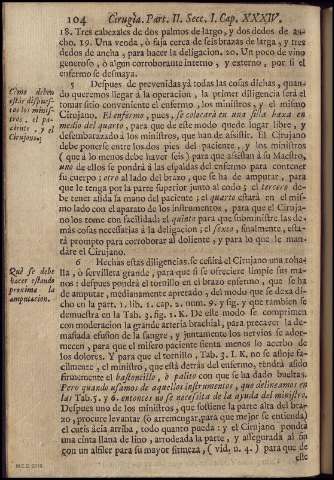 104 Cirugìa. Part. II. Secc. I. Cap. XXXIV.
18. Tres cabezales de dos palmos de largo, y dos dedos de an-
cho. 19. Una venda, ò faja cerca de seis brazas de larga, y tres
dedos de ancha, para hacer la deligacion. 20. Un poco de vino
generoso, ò algun corroborante interno, y externo, por si el
enfermo se desmaya.
5 Despues de prevenidas yà todas las cosas dichas, quan-
do queremos llegar à la operacion, la primer diligencia serà el
tomar sitio conveniente el enfermo, los ministros, y el mismo
Cirujano. El enfermo, pues, se colocarà en una silla baxa en
medio del quarto, para que de este modo quede lugar libre, y
desembarazado à los ministros, que han de assistir. El Cirujano
debe ponerse entre los dos pies del paciente, y los ministros
(que à lo menos debe haver seis) para que assistan à su Maestro,
uno de ellos se pondrà à las espaldas del enfermo para contener
su cuerpo: otro al lado del brazo, que se ha de amputar, para
que le tenga por la parte superior junto al codo; el tercero de-
be tener asida la mano del paciente: el quarto estarà en el mis-
mo lado con el aparato de los instrumentos, para que el Ciruja-
no los tome con facilidad: el quinto para que subministre las de-
màs cosas necessarias à la deligacion; el sexto, finalmente, esta-
rà prompto para corroborar al doliente, y para lo que le man-
dàre el Cirujano.
6 Hechas estas diligencias, se ceñirà el Cirujano una toha-
lla, ò servilleta grande, para que si se ofreciere limpie sus ma-
nos: despues pondrà el tornillo en el brazo enfermo, que se ha
de amputar, medianamente apretado, del modo que se dexa di-
cho en la part. 1. lib. 1. cap. 2. num. 9. y fig. y que tambien se
demuestra en la Tab. 3. fig. 1. K. De este modo se comprimen
con moderacion la grande arteria brachial, para precaver la de-
masiada efusion de la sangre, y juntamente los nervios se ador-
mecen, para que el misero paciente sienta menos lo acerbo de
los dolores. Y para que el tornillo, Tab. 3. I. K, no se afloje fa-
cilmente, el ministro, que està detràs del enfermo, tendrà asido
firmemente el bastoncillo, ò palito con que se ha dado bueltas.
Pero quando usamos de aquellos instrumentos, que delineamos en
las Tab. 5. y 6. entonces no se necessita de la ayuda del ministro.
Despues uno de los ministros, que sostiene la parte alta del bra-
zo, procure levantar (ò arremangar, para que mejor se entienda)
el cutis àcia arriba, todo quanto pueda: y el Cirujano pondrà
una cinta llana de lino, arrodeada la parte, y assegurada al fin
con un alfiler para su mayor firmeza, (vid. n. 4.) para que de
este
Como deben
estàr dispues-
tos los minis-
tros, el pa-
ciente, y el
Cirujano.
Què se debe
hacer estando
proxima la
amputacion.